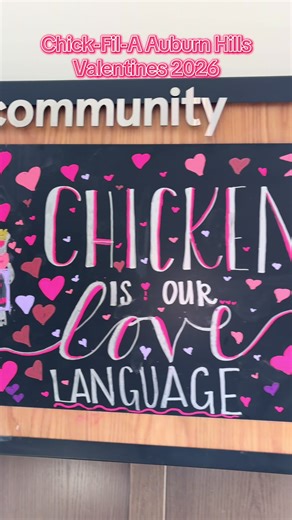 Chick-Fil-A Auburn Hills
Valentines 2026
community
CHICKEN
IS OUR
love
LANGUAGE